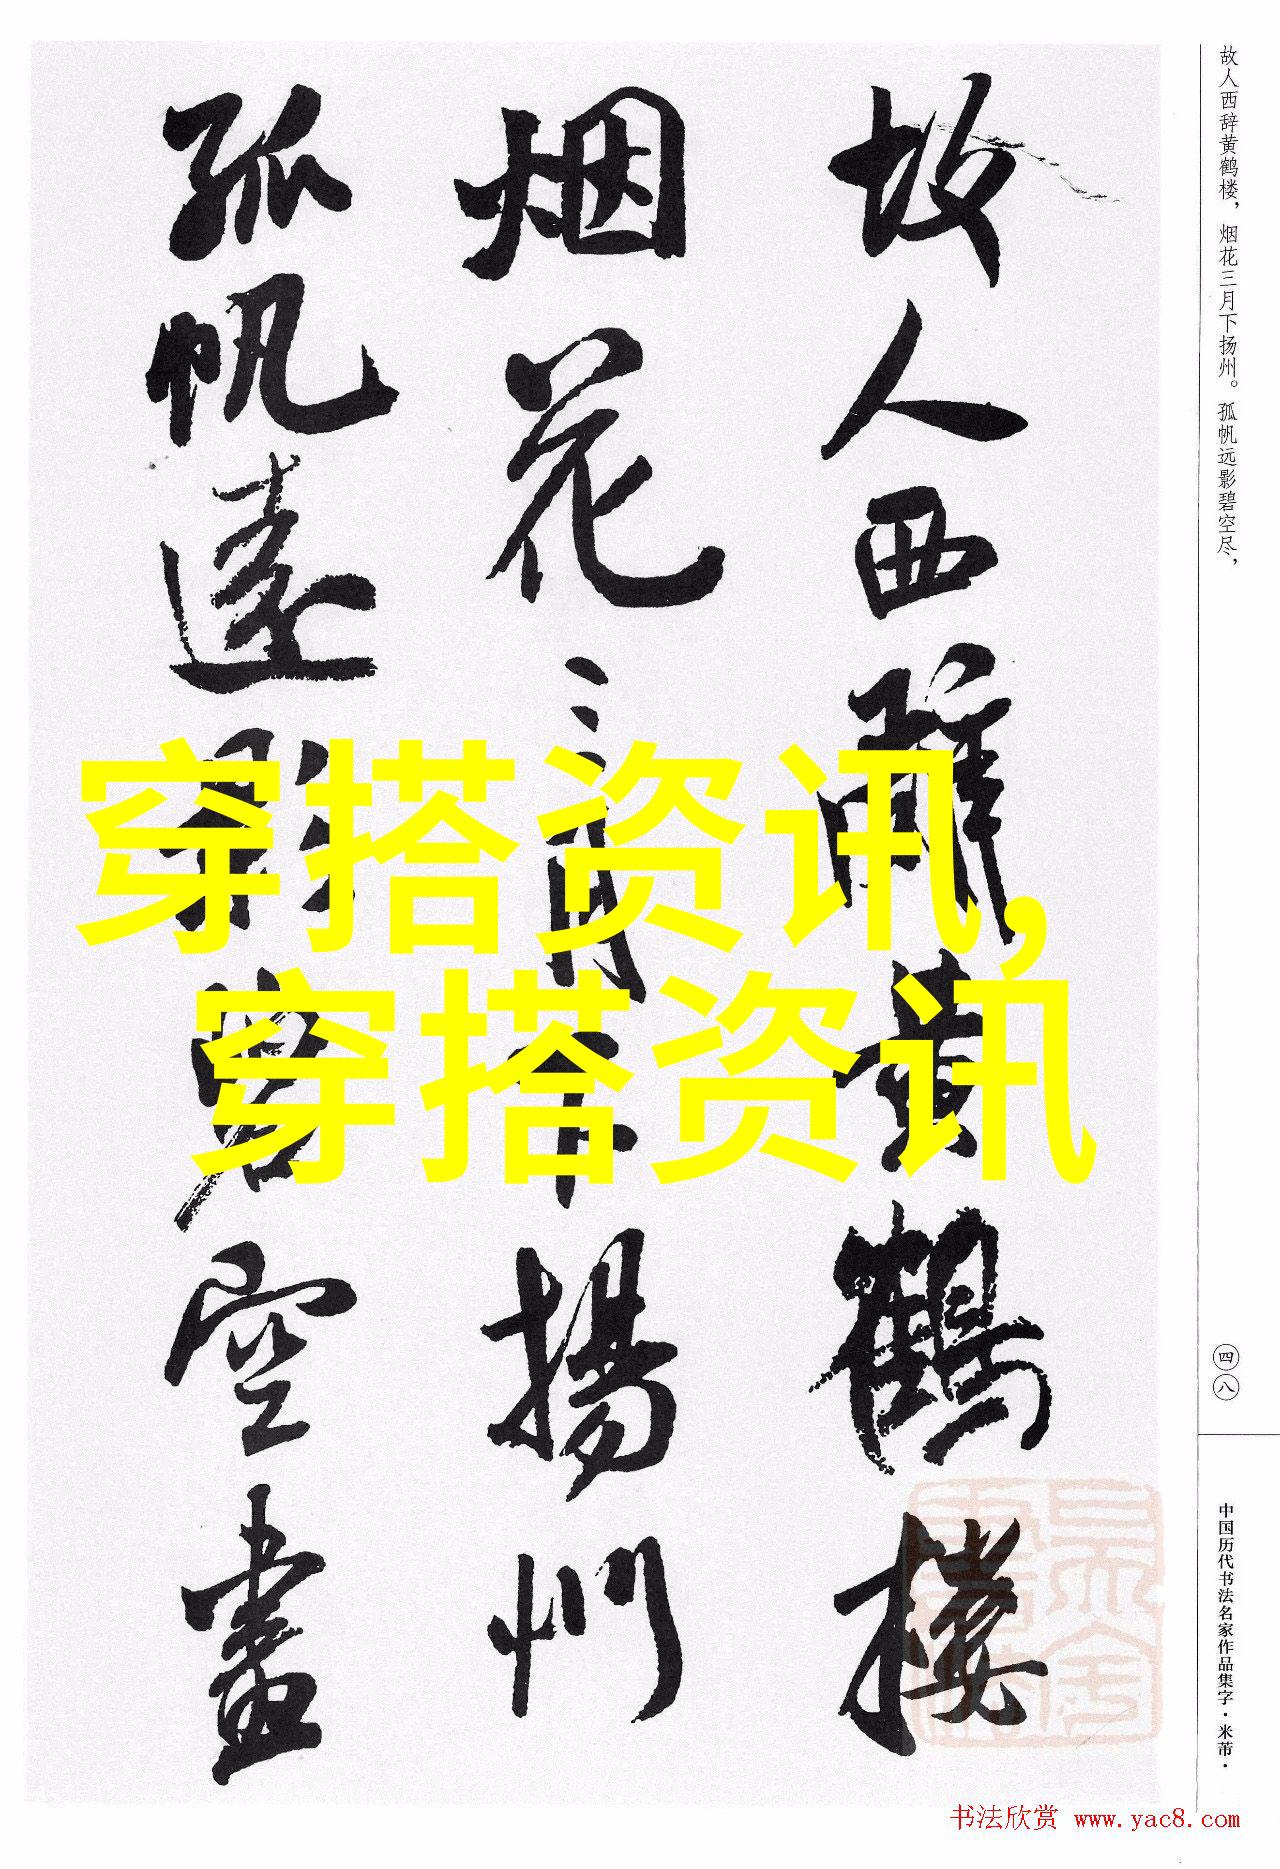 故人西辞黄鹤楼，烟花三月下扬州。孤帆远影碧空尽，
故人西辭黄鹤楼
烟花三月下揚州
孤帆遠影碧空盡
穿搭资讯,
穿搭资讯
四八
中国历代书法名家作品集字·米芾·
书法欣赏 www.yac8.com